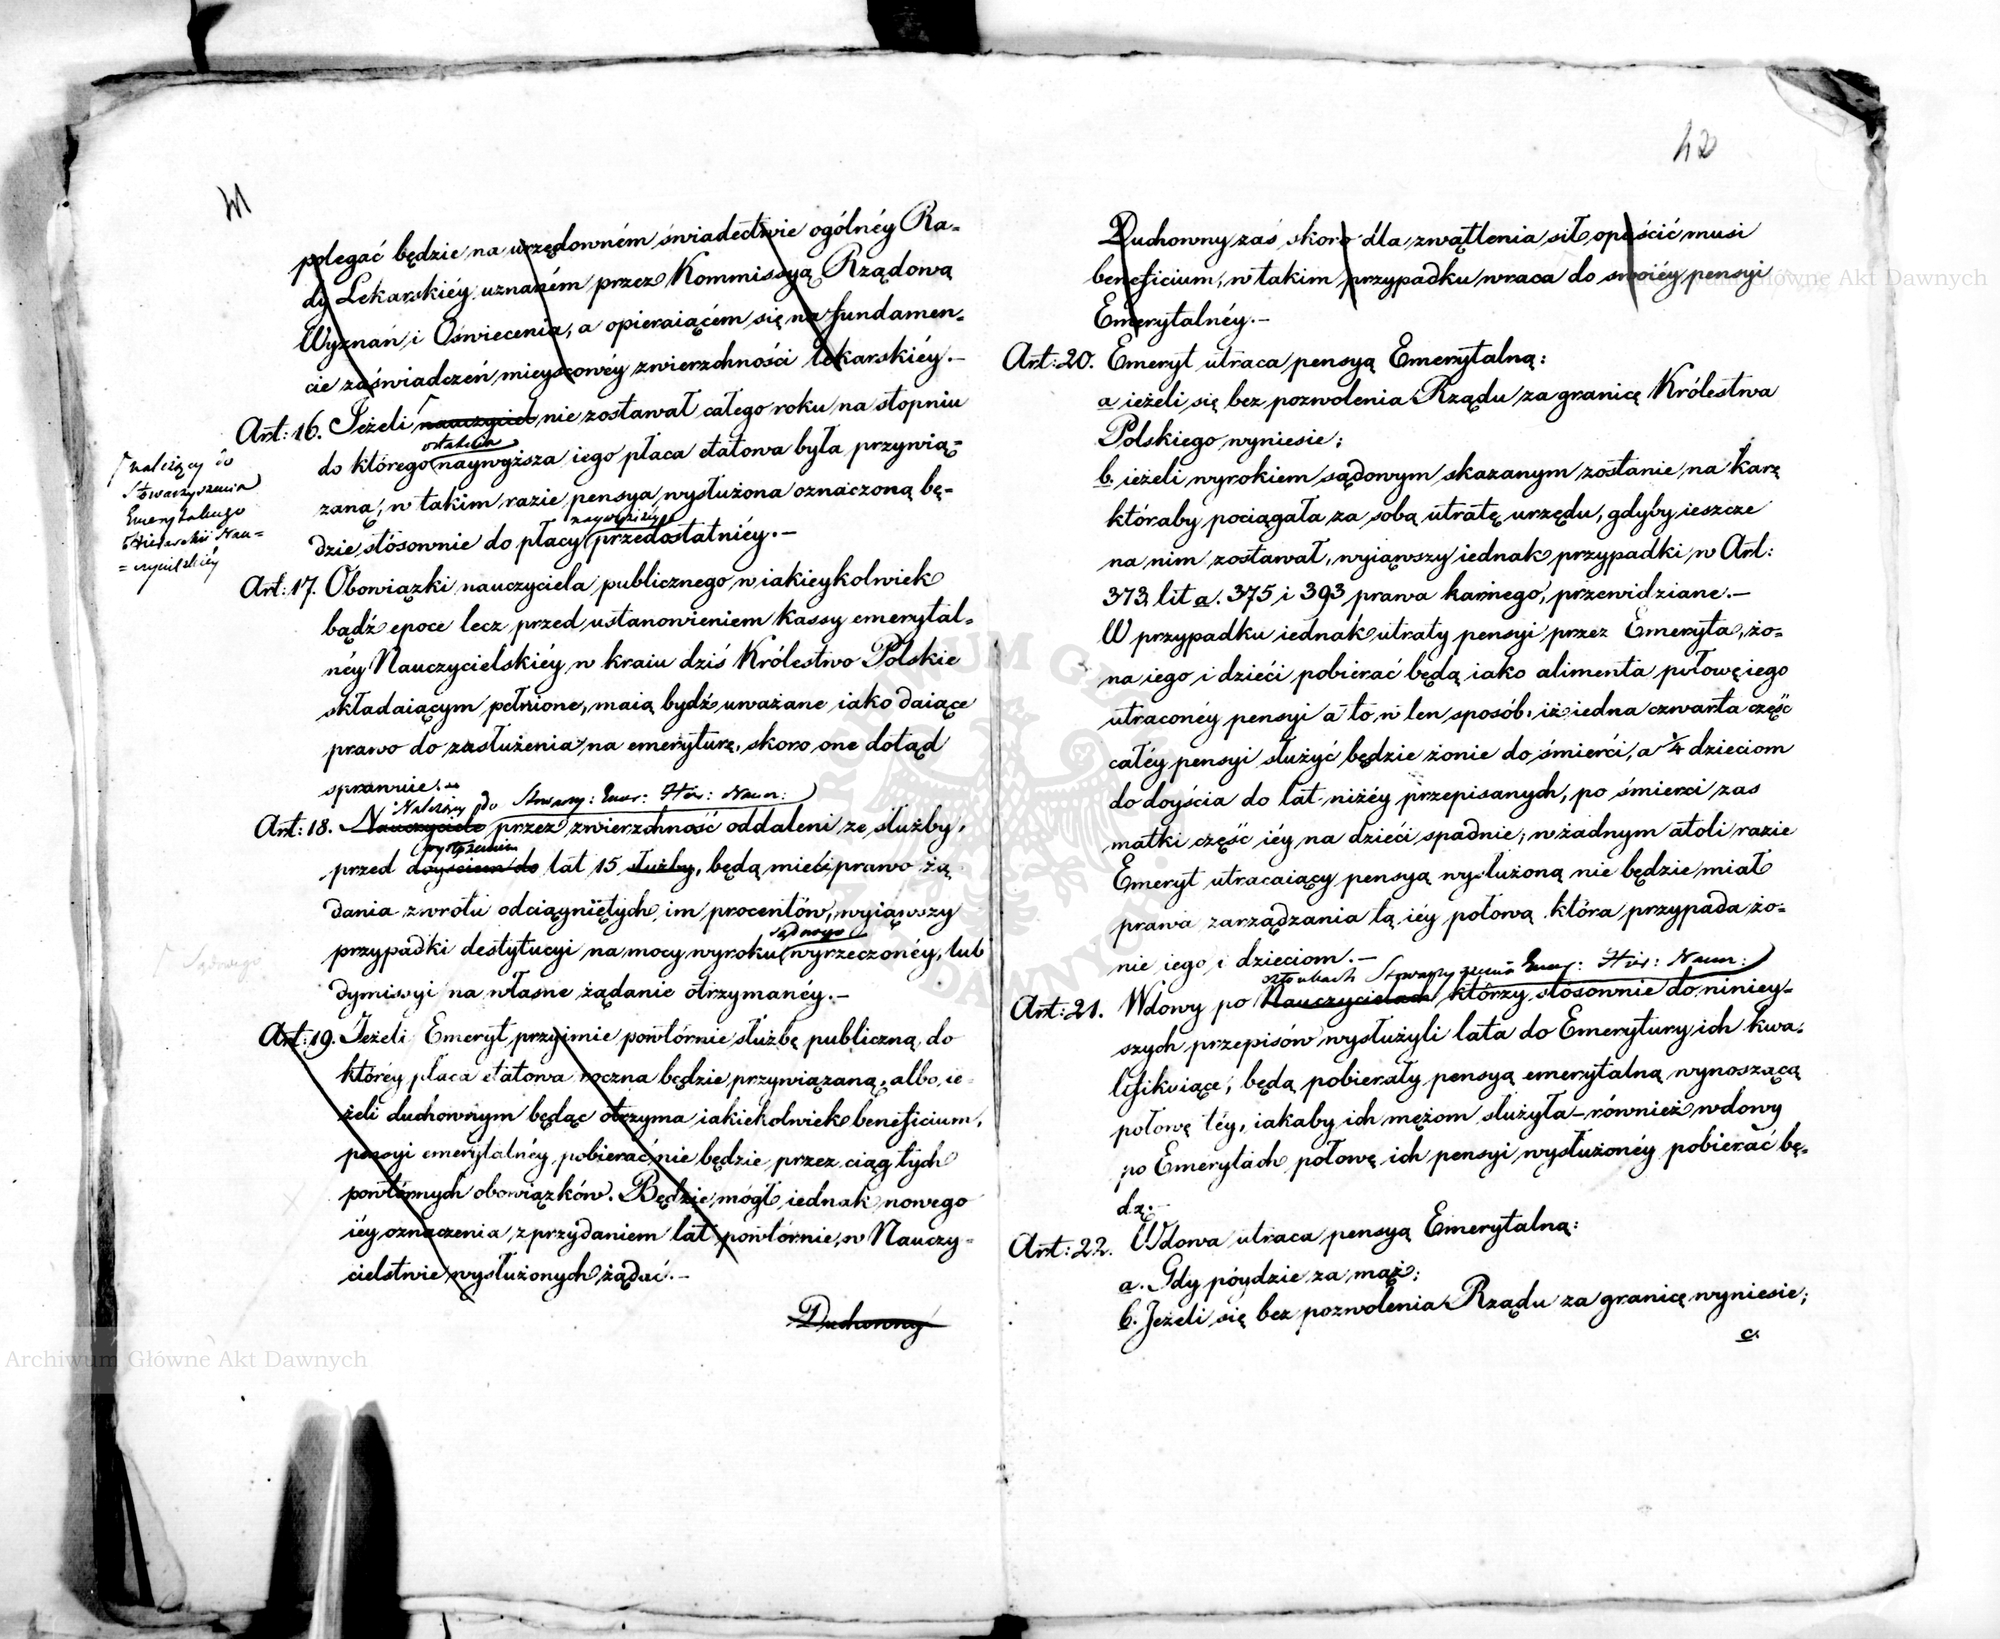 41
polegać będzie na urzędowném świadectwie ogólnéy Ra-
dy Lekarskiéy uznaném przez Kommissyą Rządową
Wyznań i Oświecenia, a opieraiącém się na fundamen-
cie zaświadczeń mieyscowéy zwierzchności lekarskiéy.—
Art: 16. Jeżeli nauczyciel nie zostawał całego roku na stopniu
ostatnia
do którego naywyższa iego płaca etatowa była przywią-
zaną, w takim razie pensya wysłużona oznaczoną bę-
naywyższéy
dzie stósownie do płacy przedostatniéy.—
należący do
Stowarzyszenia
Emerytalnego
Hierarchii Nau=
=czycielskiéy
Art: 17. Obowiązki nauczyciela publicznego w iakieykolwiek
bądź epoce lecz przed ustanowieniem Kassy emerytal-
néy Nauczycielskiéy w kraiu dziś Królestwo Polskie
składaiącym pełnione, maią bydź uważane iako daiące
prawo do zasłużenia na emeryturę, skoro one dotąd
sprawuie.—
Należący do Stowarz: Emer: Hier: Naucz:
Art: 18. Nauczyciele przez zwierzchność oddaleni ze służby,
wysłużeniem
przed doyściem do lat 15 służby, będą mieć prawo żą
dania zwrotu odciągniętych im procentów, wyiąwszy
sądowego
przypadki destytucyi na mocy wyroku wyrzeczonéy, lub
dymissyi na własne żądanie otrzymanéy.—
Sądowego
Art: 19. Jeżeli Emeryt przyimie powtórnie służbę publiczną, do
któréy płaca etatowa roczna będzie przywiązaną, albo ie-
żeli duchownym będąc otrzyma iakiekolwiek beneficium,
pensyi emerytalnéy pobierać nie będzie przez ciąg tych
powtórnych obowiązków. Będzie mógł iednak nowego
iéy oznaczenia z przydaniem lat powtórnie w Nauczy-
cielstwie wysłużonych żądać.—
Duchowny
42
Duchowny zaś skoro dla zwątlenia sił opuścić musi
beneficium, w takim przypadku wraca do swoiéy pensyi
Emerytalnéy.—
Art: 20. Emeryt utraca pensyą Emerytalną:
a ieżeli się bez pozwolenia Rządu za granicę Królestwa
Polskiego wyniesie;
b. ieżeli wyrokiem sądowym skazanym zostanie na karę
któraby pociągała za sobą utratę urzędu, gdyby ieszcze
na nim zostawał, wyiąwszy iednak przypadki w Art:
373 lit a. 375 i 393 prawa karnego, przewidziane.—
W przypadku iednak utraty pensyi przez Emeryta, żo-
na iego i dzieći pobierać będą iako alimenta połowę iego
utraconéy pensyi a to w ten sposób, iż iedna czwarta część
całéy pensyi służyć będzie żonie do śmierći, a ¼ dzieciom
do doyścia do lat niżéy przepisanych, po śmierci zas
matki część iéy na dzieći spadnie; w żadnym atoli razie
Emeryt utracaiący pensyą wysłużoną nie będzie miał
prawa zarządzania tą iéy połową która przypada żo-
nie iego i dzieciom.—
członkach Stowarzyszenia Emer: Hier: Naucz:
Art: 21. Wdowy po Nauczycielach którzy stósownie do niniey-
szych przepisów wysłużyli lata do Emerytury ich kwa-
lifikuiące, będą pobierały pensyą emerytalną wynoszącą
połowę téy, iakaby ich mężom służyła – również wdowy
po Emerytach połowę ich pensyi wysłużonéy pobierać bę-
dą.—
Art: 22. Wdowa utraca pensyą Emerytalną:
a. Gdy póydzie za mąż;
b. Jeżeli się bez pozwolenia Rządu za granicę wyniesie;
c.
Archiwum Główne Akt Dawnych
Archiwum Główne Akt Dawnych
ARCHIWUM GŁÓWNE AKT DAWNYCH